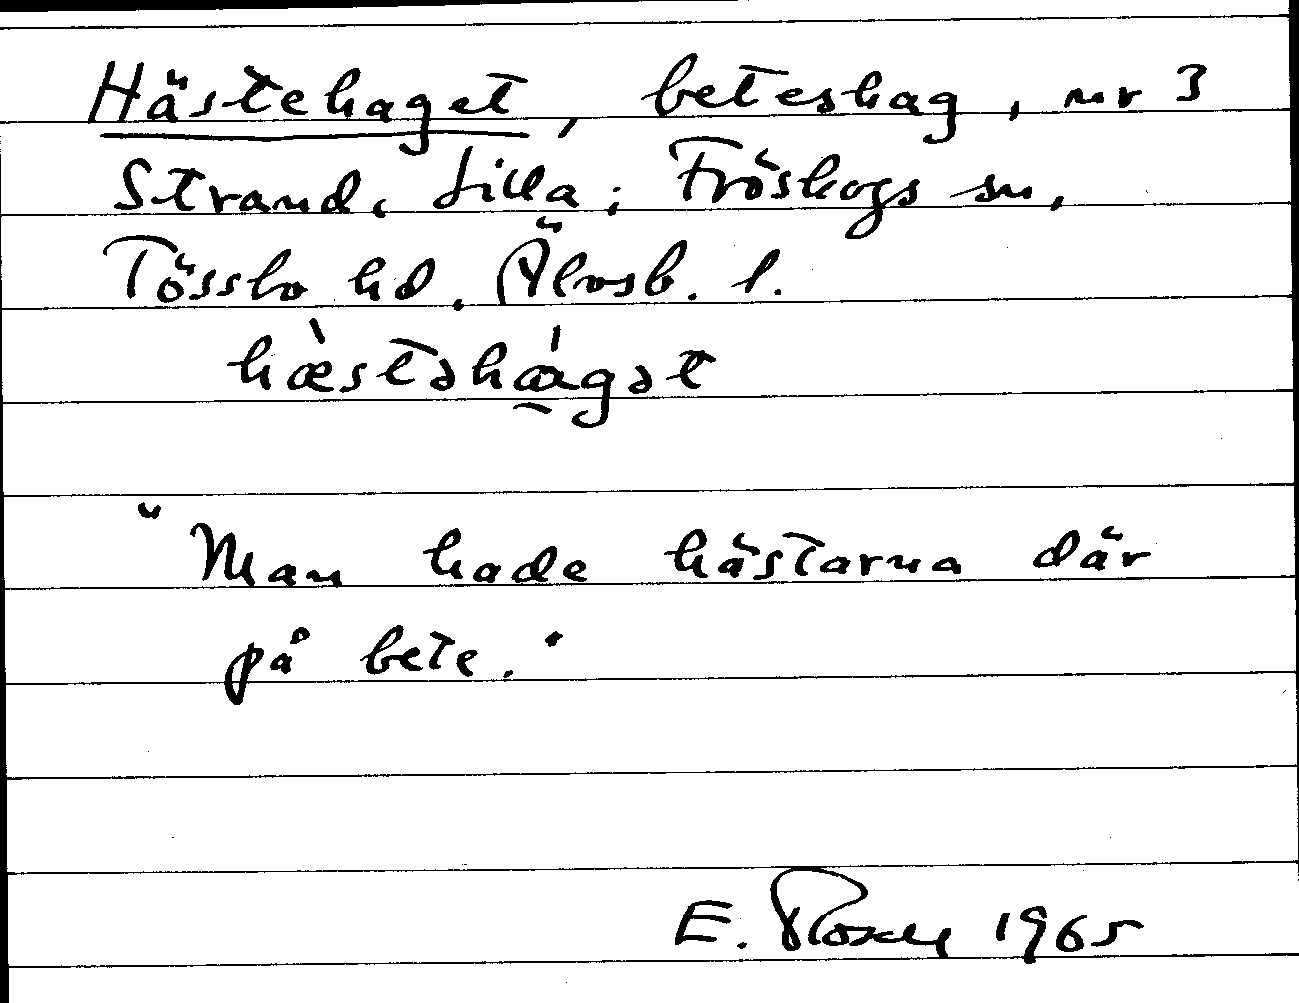 Hästehaget, beteshag, nr 3
Strand, Lilla; Fröskogs sn,
Tössbo hd. Älvsb. l.
hæ̀stəhá̱gət
"Man hade hästarna där
på bete."
E. 1965